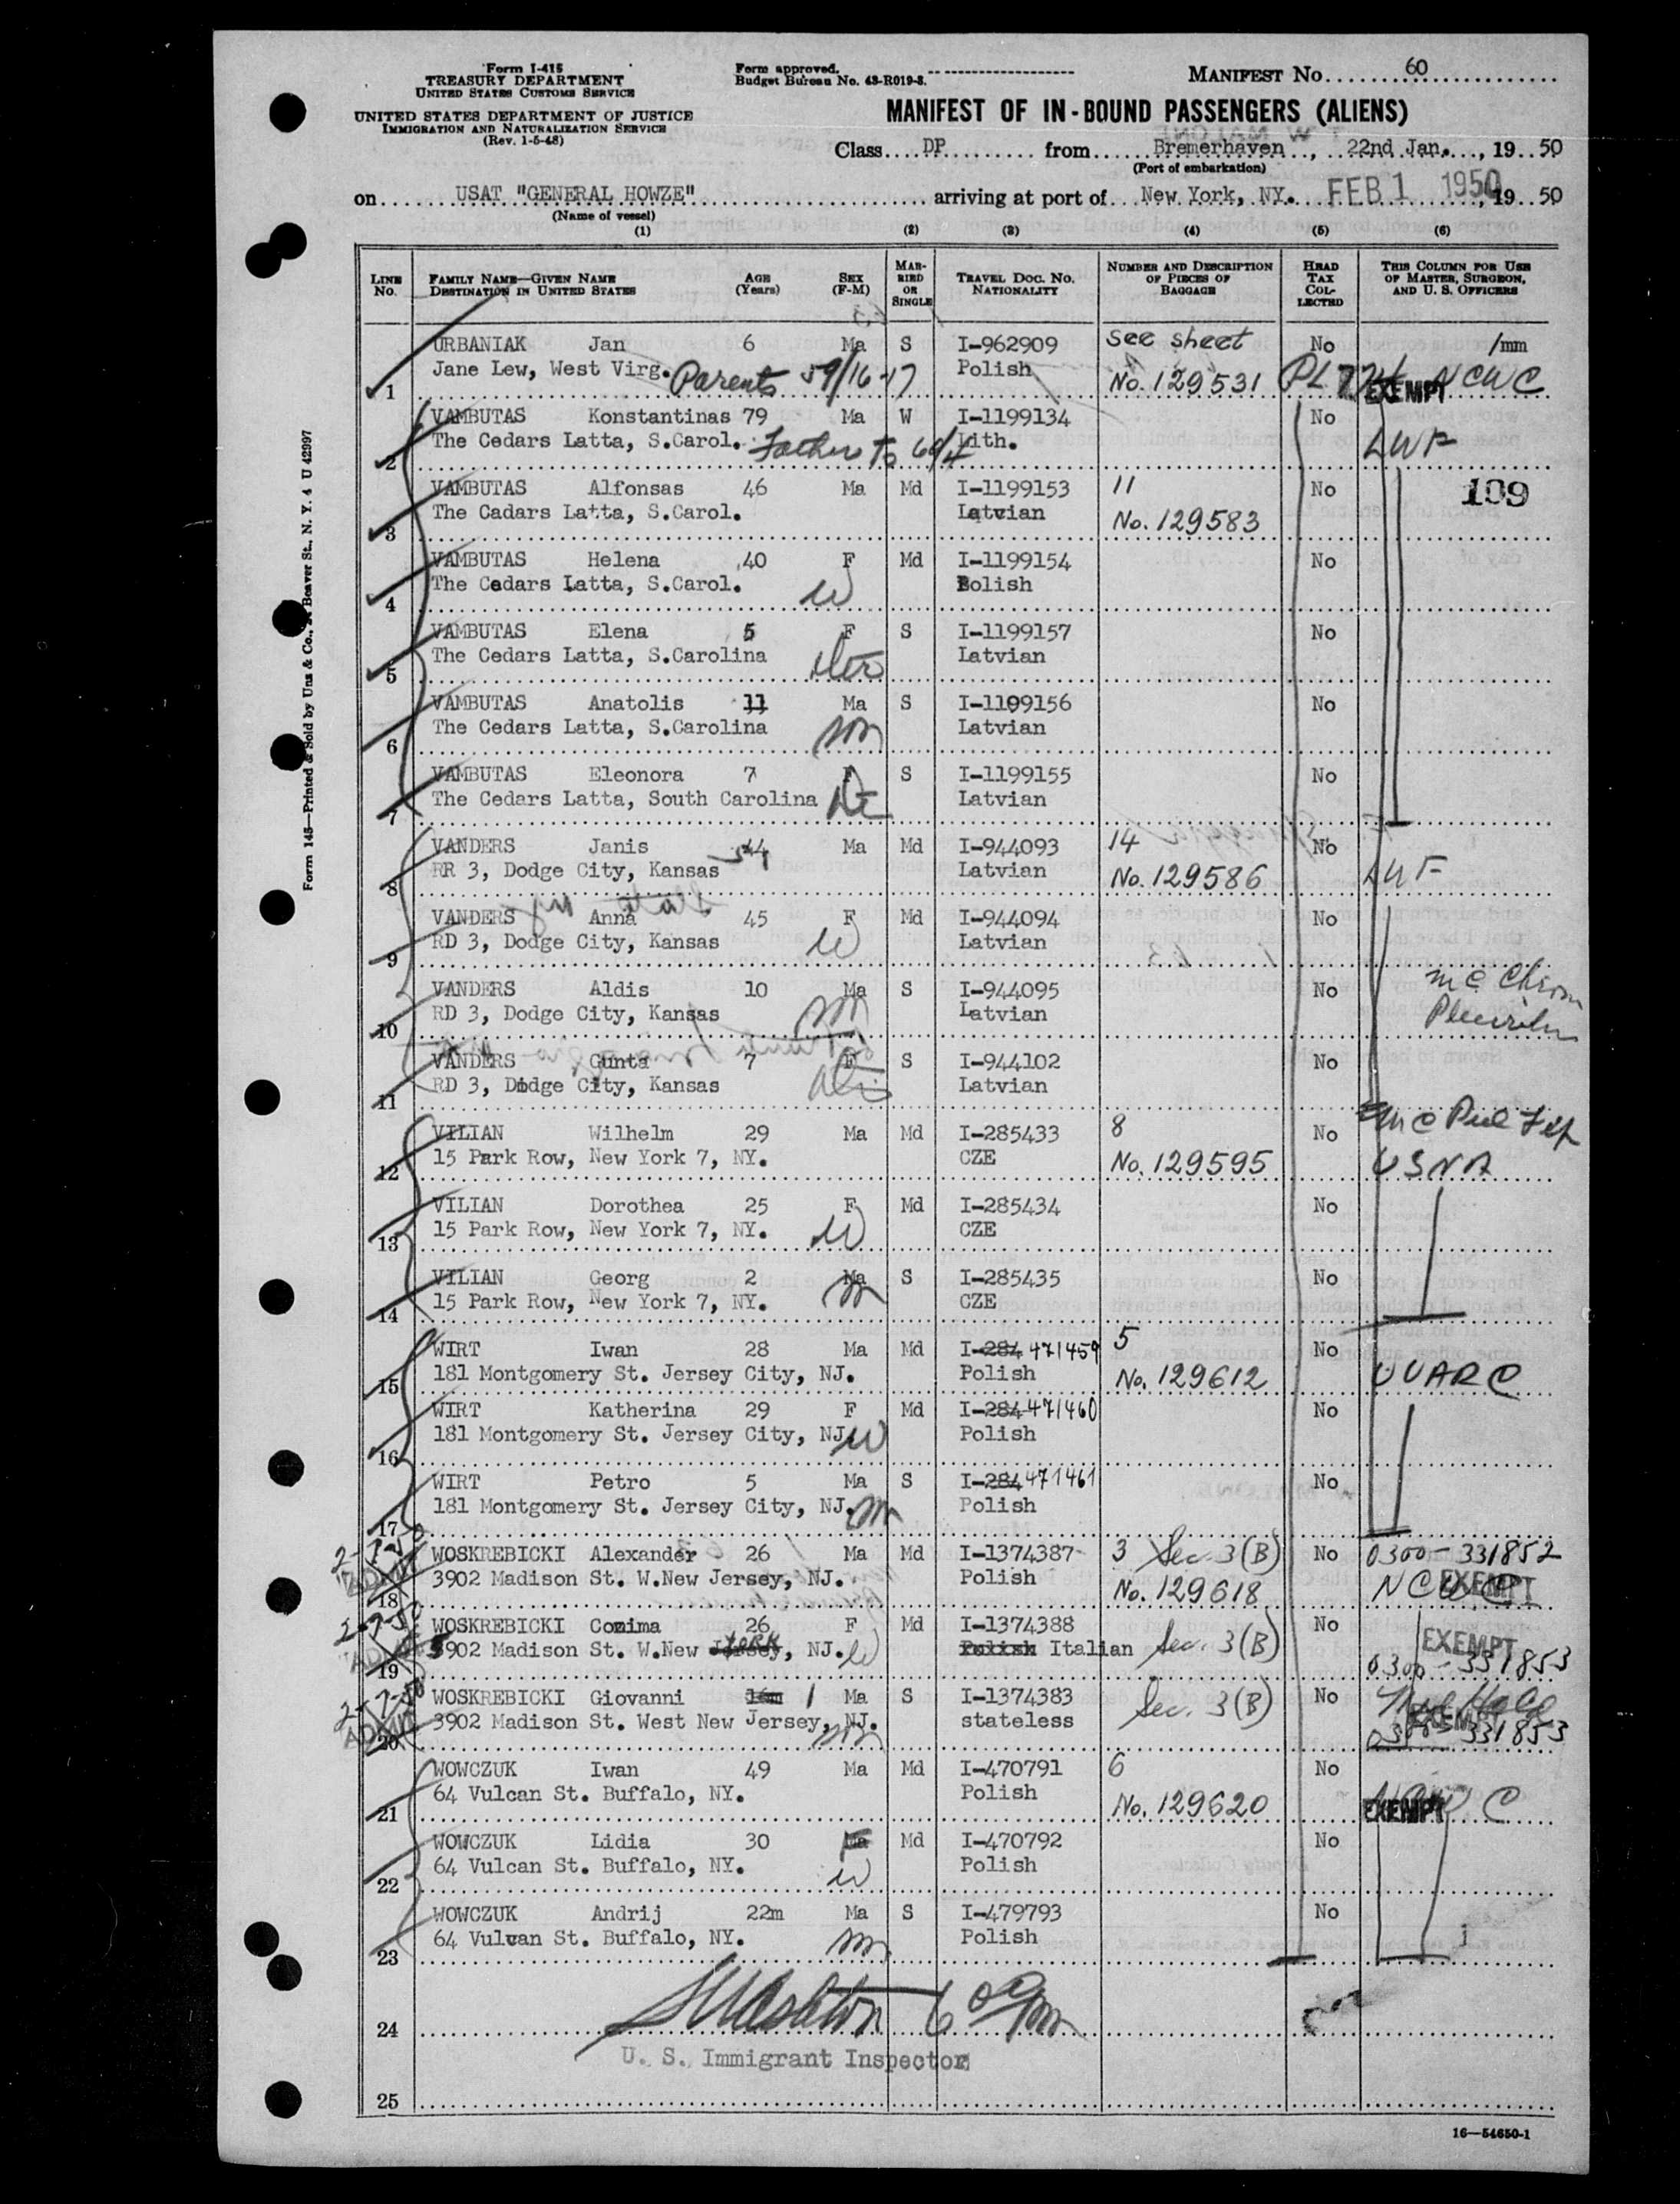 Form I-415
TREASURY DEPARTMENT
UNITED STATES CUSTOMS SERVICE
UNITED STATES DEPARTMENT OF JUSTICE
IMMIGRATION AND NATURALIZATION SERVICE
(Rev. 1-5-48)
Form approved.
Budget Bureau No. 43-R019-3.
MANIFEST NO. 60
MANIFEST OF IN-BOUND PASSENGERS (ALIENS)
Class DP from Bremerhaven, 22nd Jan., 19 50
(Port of embarkation)
on USAT "GENERAL HOWZE" arriving at port of New York, NY. FEB 1 1950, 19 50
(Name of vessel)
(1) (2) (3) (4) (5) (6)
LINE NO. FAMILY NAME—GIVEN NAME DESTINATION IN UNITED STATES AGE (Years) SEX (F-M) MARRIED OR SINGLE TRAVEL DOC. NO. NATIONALITY NUMBER AND DESCRIPTION OF PIECES OF BAGGAGE HEAD TAX COLLECTED THIS COLUMN FOR USE OF MASTER, SURGEON, AND U. S. OFFICERS
URBANIAK Jan 6 Ma S I-962909 see sheet No /mm
1 Jane Lew, West Virg. Parents 59/16-17 Polish No. 129531 EXEMPT NCWC
VAMBUTAS Konstantinas 79 Ma W I-1199134 No
2 The Cedars Latta, S.Carol. Father to 60/4 Lith. LWF
VAMBUTAS Alfonsas 46 Ma Md I-1199153 11 No 109
3 The Cadars Latta, S.Carol. Latvian No. 129583
VAMBUTAS Helena 40 F Md I-1199154 No
4 The Cedars Latta, S.Carol. W Polish
VAMBUTAS Elena 5 F S I-1199157 No
5 The Cedars Latta, S.Carolina Latvian
VAMBUTAS Anatolis 11 Ma S I-1199156 No
6 The Cedars Latta, S.Carolina son Latvian
VAMBUTAS Eleonora 7 F S I-1199155 No
7 The Cedars Latta, South Carolina Latvian
VANDERS Janis 44 Ma Md I-944093 14 No
8 RR 3, Dodge City, Kansas Latvian No. 129586 LWF
VANDERS Anna 45 F Md I-944094 No
9 RD 3, Dodge City, Kansas W Latvian
VANDERS Aldis 10 Ma S I-944095 No
10 RD 3, Dodge City, Kansas Latvian
VANDERS Gunta 7 F S I-944102 No
11 RD 3, Dodge City, Kansas Latvian
VILIAN Wilhelm 29 Ma Md I-285433 8 No
12 15 Park Row, New York 7, NY. CZE No. 129595 USNA
VILIAN Dorothea 25 F Md I-285434 No
13 15 Park Row, New York 7, NY. W CZE
VILIAN Georg 2 Ma S I-285435 No
14 15 Park Row, New York 7, NY. CZE
WIRT Iwan 28 Ma Md I-284 471459 5 No
15 181 Montgomery St. Jersey City, NJ. Polish No. 129612 UUARC
WIRT Katherina 29 F Md I-284 471460 No
16 181 Montgomery St. Jersey City, NJ. W Polish
WIRT Petro 5 Ma S I-284 471461 No
17 181 Montgomery St. Jersey City, NJ. Polish
WOSKREBICKI Alexander 26 Ma Md I-1374387 3 Sec. 3(B) No 0300-331852
18 3902 Madison St. W.New Jersey, NJ. Polish No. 129618 NCWC EXEMPT
WOSKREBICKI Cozima 26 F Md I-1374388 No EXEMPT
19 3902 Madison St. W.New Jersey York, NJ. W Polish Italian Sec. 3(B) 0300-331853
WOSKREBICKI Giovanni 1 Ma S I-1374383 Sec. 3(B) No
20 3902 Madison St. West New Jersey, NJ. stateless EXEMPT 0300-331853
WOWCZUK Iwan 49 Ma Md I-470791 6 No
21 64 Vulcan St. Buffalo, NY. Polish No. 129620 EXEMPT NCWC
WOWCZUK Lidia 30 Md I-470792 No
22 64 Vulcan St. Buffalo, NY. W Polish
WOWCZUK Andrij 22m Ma S I-479793 No
23 64 Vulcan St. Buffalo, NY. Polish
24
U. S. Immigrant Inspector
25
16—54650-1
Form 145—Printed & Sold by Unz & Co., Beaver St., N. Y. 4 U 42997